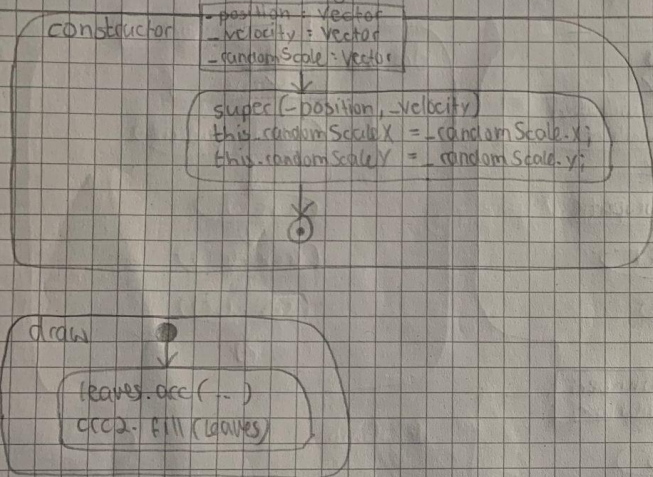 constructor
_position : Vector
_velocity : Vector
_randomScale : Vector
super(_position, _velocity)
this.randomScaleX = _randomScale.x;
this.randomScaleY = _randomScale.y;
draw
leaves.arc(...)
crc2.fill(leaves)